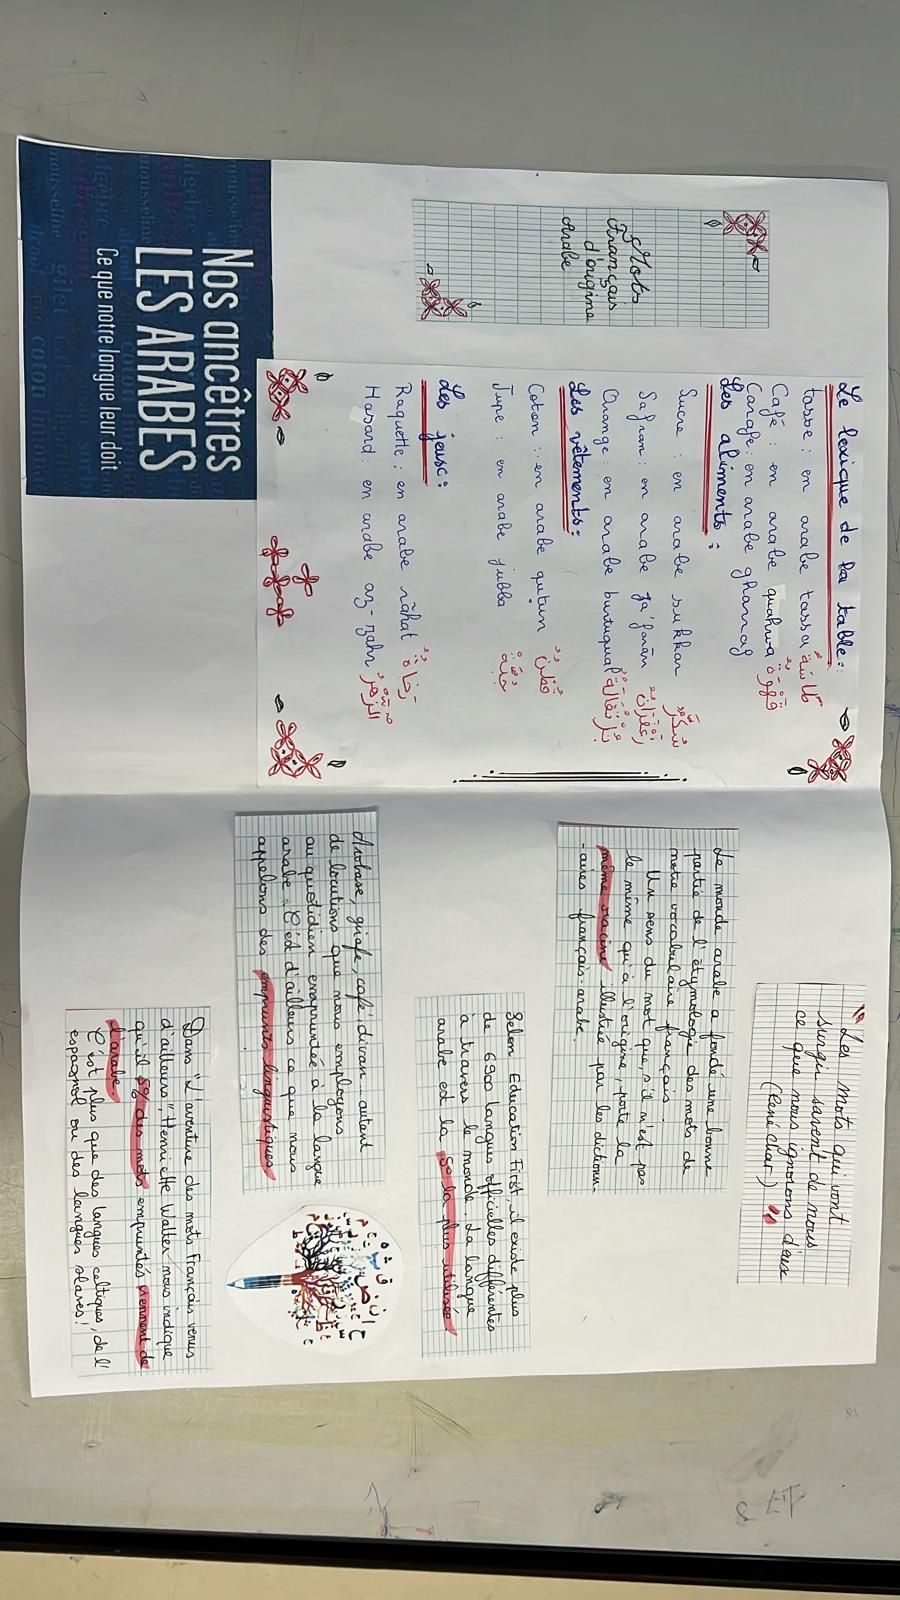 Mots
Français
d'origine
Arabe
Le lexique de la table:
tasse : en arabe tassa طاسة
Café : en arabe quahwa قهوة
Carafe : en arabe gharraf
Les aliments :
Sucre : en arabe sukkar سُكَّر
Safran : en arabe za'farān زعفران
Orange : en arabe burtuqual برتقالة
Les vêtements :
Coton : en arabe qutun قطن
Jupe : en arabe jubba جبة
Les jeux :
Raquette : en arabe rāhat
Hasard : en arabe az-zahr الزهر
Nos ancêtres
LES ARABES
Ce que notre langue leur doit
" Les mots qui vont
surgir savent de nous
ce que nous ignorons d'eux
(René Char) "
Le monde arabe a fondé une bonne
partie de l'étymologie des mots de
notre vocabulaire français.
Un sens du mot que, s'il n'est pas
le même qu'à l'origine, porte la
même racine illustrée par les dictionn-
-aires français-arabe.
Selon Education First, il existe plus
de 6900 langues officielles différentes
à travers le monde. La langue
arabe est la 5e la plus utilisée.
Arobase, girafe, café, divan... autant
de locutions que nous employons
au quotidien empruntés à la langue
arabe. C'est d'ailleurs ce que nous
appelons des emprunts linguistiques
Dans "L'aventure des mots Français venus
d'ailleurs", Henriette Walter nous indique
des mots empruntés viennent de
l'arabe.
C'est plus que des langues celtiques, de l'
espagnol ou des langues slaves!